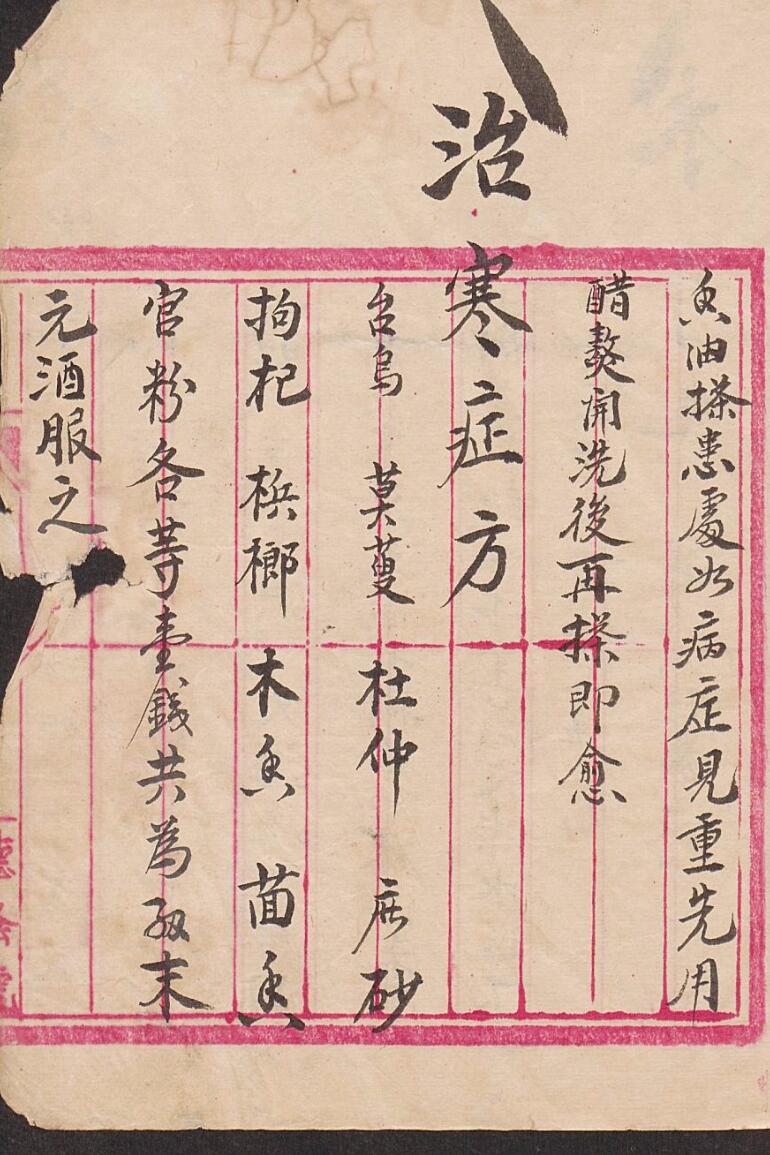 香油搽患處如病症見重先用
醋熬開洗後再搽即愈
治寒症方
台烏 莫蔓 杜仲 庶砂
拘杞 梹榔 木香 茴香
官粉各等壹錢共為 末
元酒服之